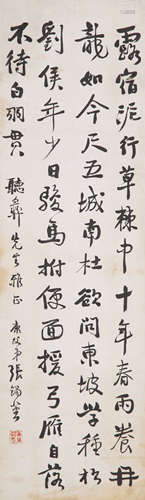 露宿泥行草棘中十年春雨養髯
龍如今尺五城南杜欲問東坡學種松
劉侯年少日駿馬拊便面援弓雁自落
不待白羽貫
聽彝先生雅正
弟張錫鑾